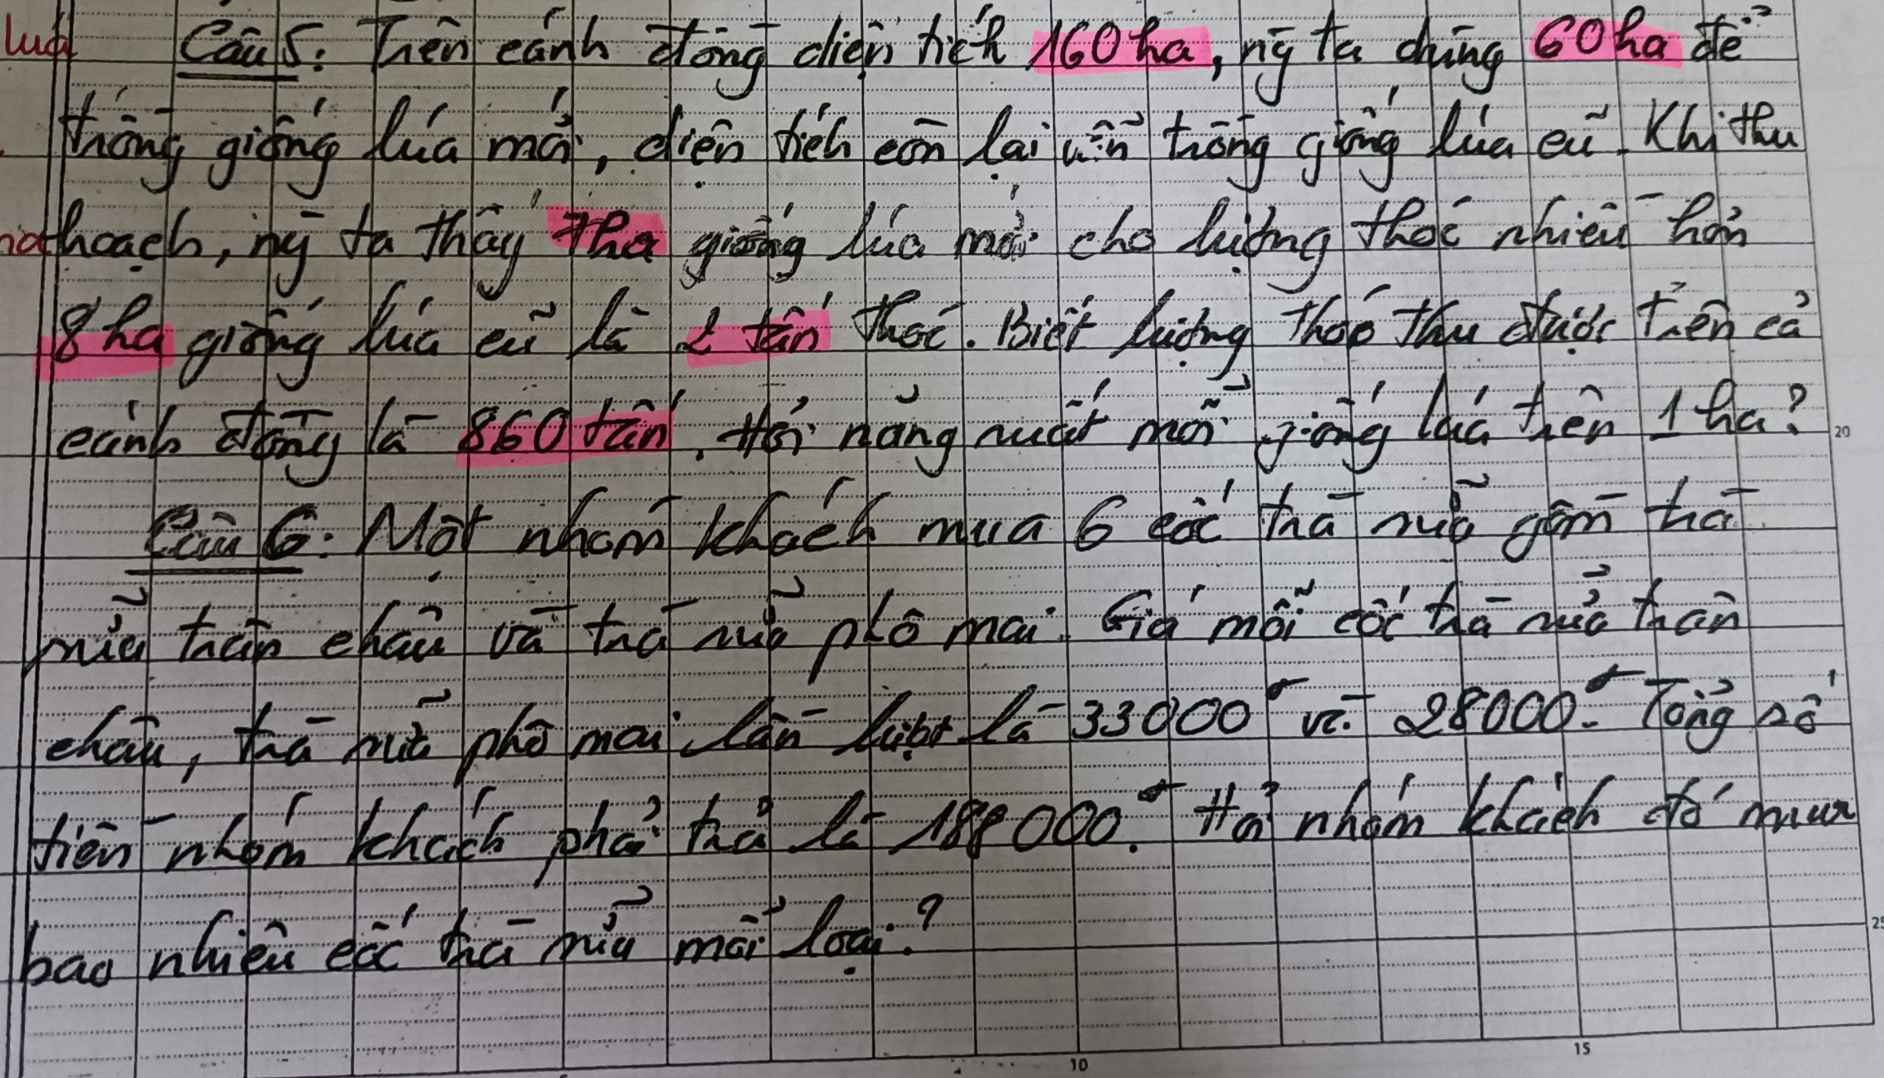 lúa Câu 5: Trên cánh đồng diện tích 160 ha, ng ta dùng 60 ha để
trồng giống lúa mới, diện tích còn lại vẫn trồng giống lúa cũ. Khi thu
hoạch, ng ta thấy 7ha giống lúa mới cho lượng thóc nhiều hơn
8 ha giống lúa cũ là 2 tấn thóc. Biết lượng thóc thu được trên cả
cánh đồng là 860 tấn. Hỏi năng suất mỗi giống lúa trên 1 ha?
Câu 6: Một nhóm khách mua 6 cốc trà sữa gồm trà
sữa trân châu và trà sữa phô mai. Giá mỗi cốc trà sữa trân
châu, trà sữa phô mai lần lượt là 33000đ và 28000đ. Tổng số
tiền nhóm khách phải trả là 188000đ. Hỏi nhóm khách đó mua
bao nhiêu cốc trà sữa mỗi loại?
20
25
10
15